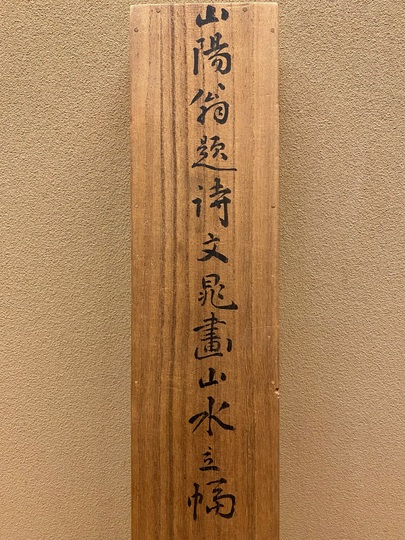 山陽翁題詩文晁畫山水立幅